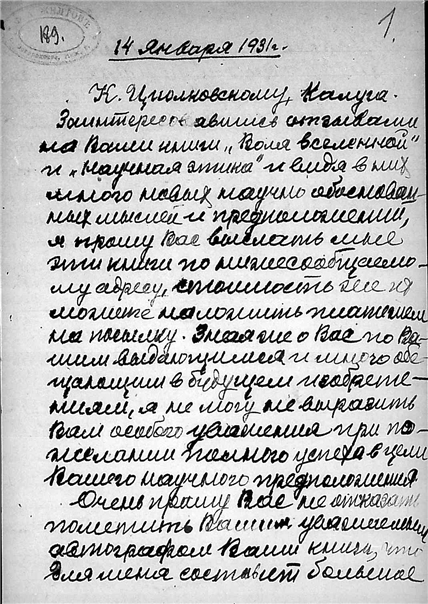 189.
1.
14 января 1931г.
К. Циолковскому, Калуга.
Заинтересовавшись отзывами
на Ваши книги „Воля вселенной"
и „Научная этика" и видя в них
много новых научно обоснован-
ных мыслей и предположений,
я прошу Вас выслать мне
эти книги по нижесообщаемо-
му адресу, стоимость же их
можете наложить платежем
на посылку. Зная же о Вас по Ва-
шим выдающимся и много обе-
щающим в будущем изобрете-
ниям, я не могу не выразить
Вам особого уважения при по-
желании полного успеха в цели
Вашего научного предположения
Очень прошу Вас не отказать
пометить Вашим уважаемым
автографом Ваши книги, что
для меня составит большое